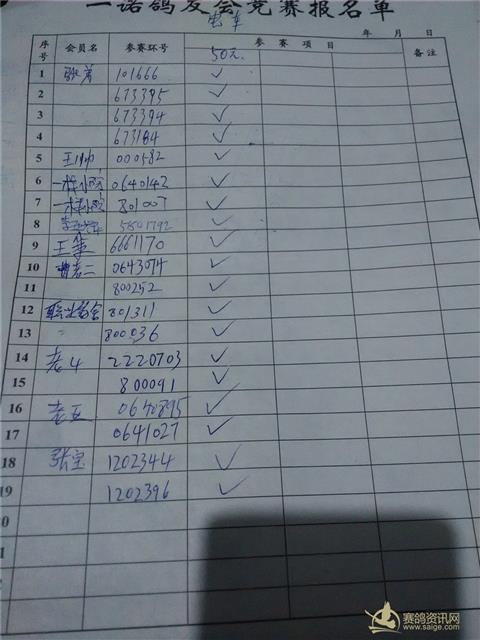 一诺鸽友会竞赛报名单
电车
年 月 日
序号 会员名 参赛环号 参赛项目 备注
50元
1 101666 ✓
2 673395 ✓
3 673394 ✓
4 673184 ✓
5 王帅 000582 ✓
6 0640142 ✓
7 801007 ✓
8 5801792 ✓
9 王 6661170 ✓
10 曹老二 0643074 ✓
11 800252 ✓
12 801311 ✓
13 〃 800036 ✓
14 老4 2220703 ✓
15 800091 ✓
16 老五 0640895 ✓
17 0641027 ✓
18 张宝 1202344 ✓
19 1202396 ✓
赛鸽资讯网
www.saige.com